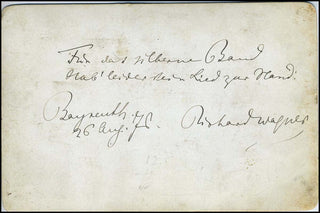 Für das silberne Band
Hab' leider kein Lied zur Hand.
Bayreuth
26 Aug. Richard Wagner